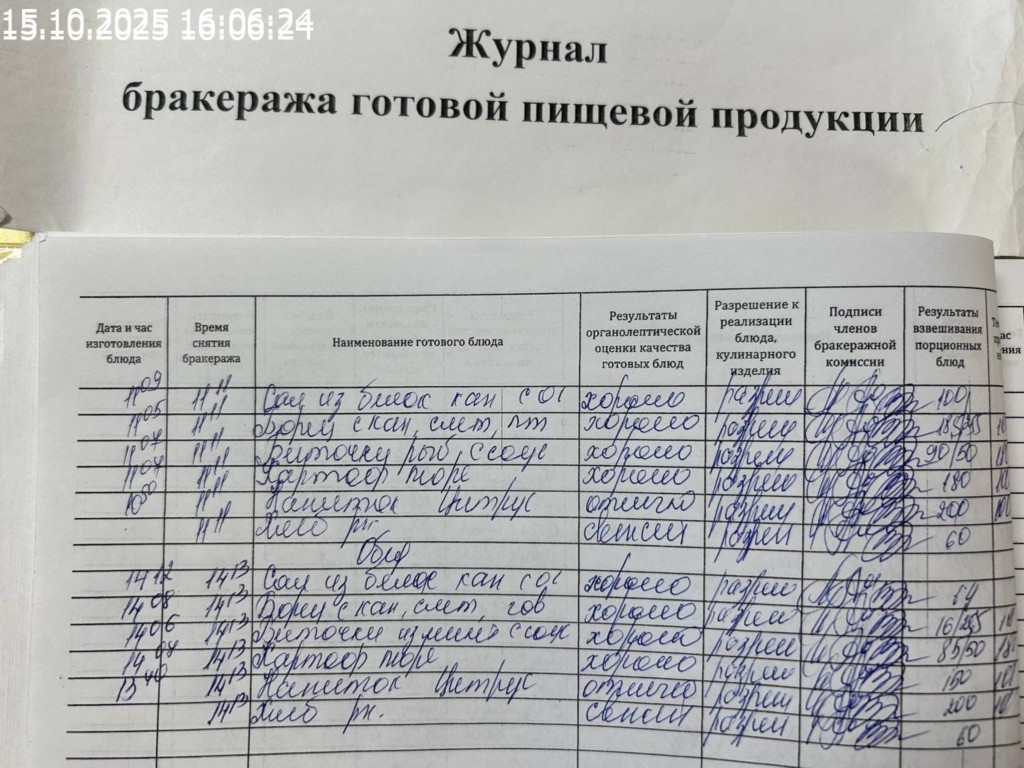 15.10.2025 16:06:24
Журнал
бракеража готовой пищевой продукции
Дата и час изготовления блюда Время снятия бракеража Наименование готового блюда Результаты органолептической оценки качества готовых блюд Разрешение к реализации блюда, кулинарного изделия Подписи членов бракеражной комиссии Результаты взвешивания порционных блюд
11 09 11 11 Сал из белок кап с ог хорошо разреш 100
11 05 11 11 Борщ с кап, смет, хорошо разреш
11 07 11 11 Биточки рыб с соус хорошо разреш 90/50
11 04 11 11 Картоф пюре хорошо разреш 180
10 50 11 11 Напиток Цитрус отлично разреш 200
11 11 Хлеб рж. свежий разреш 60
Обед
14 12 14 13 Сал из белок кап с ог хорошо разреш
14 08 14 13 Борщ с кап, смет, гов хорошо разреш
14 06 14 13 Биточки с соус хорошо разреш 85/50
14 04 14 13 Картоф пюре хорошо разреш 150
13 40 14 13 Напиток Цитрус отлично разреш 200
14 13 Хлеб рж. свежий разреш 60